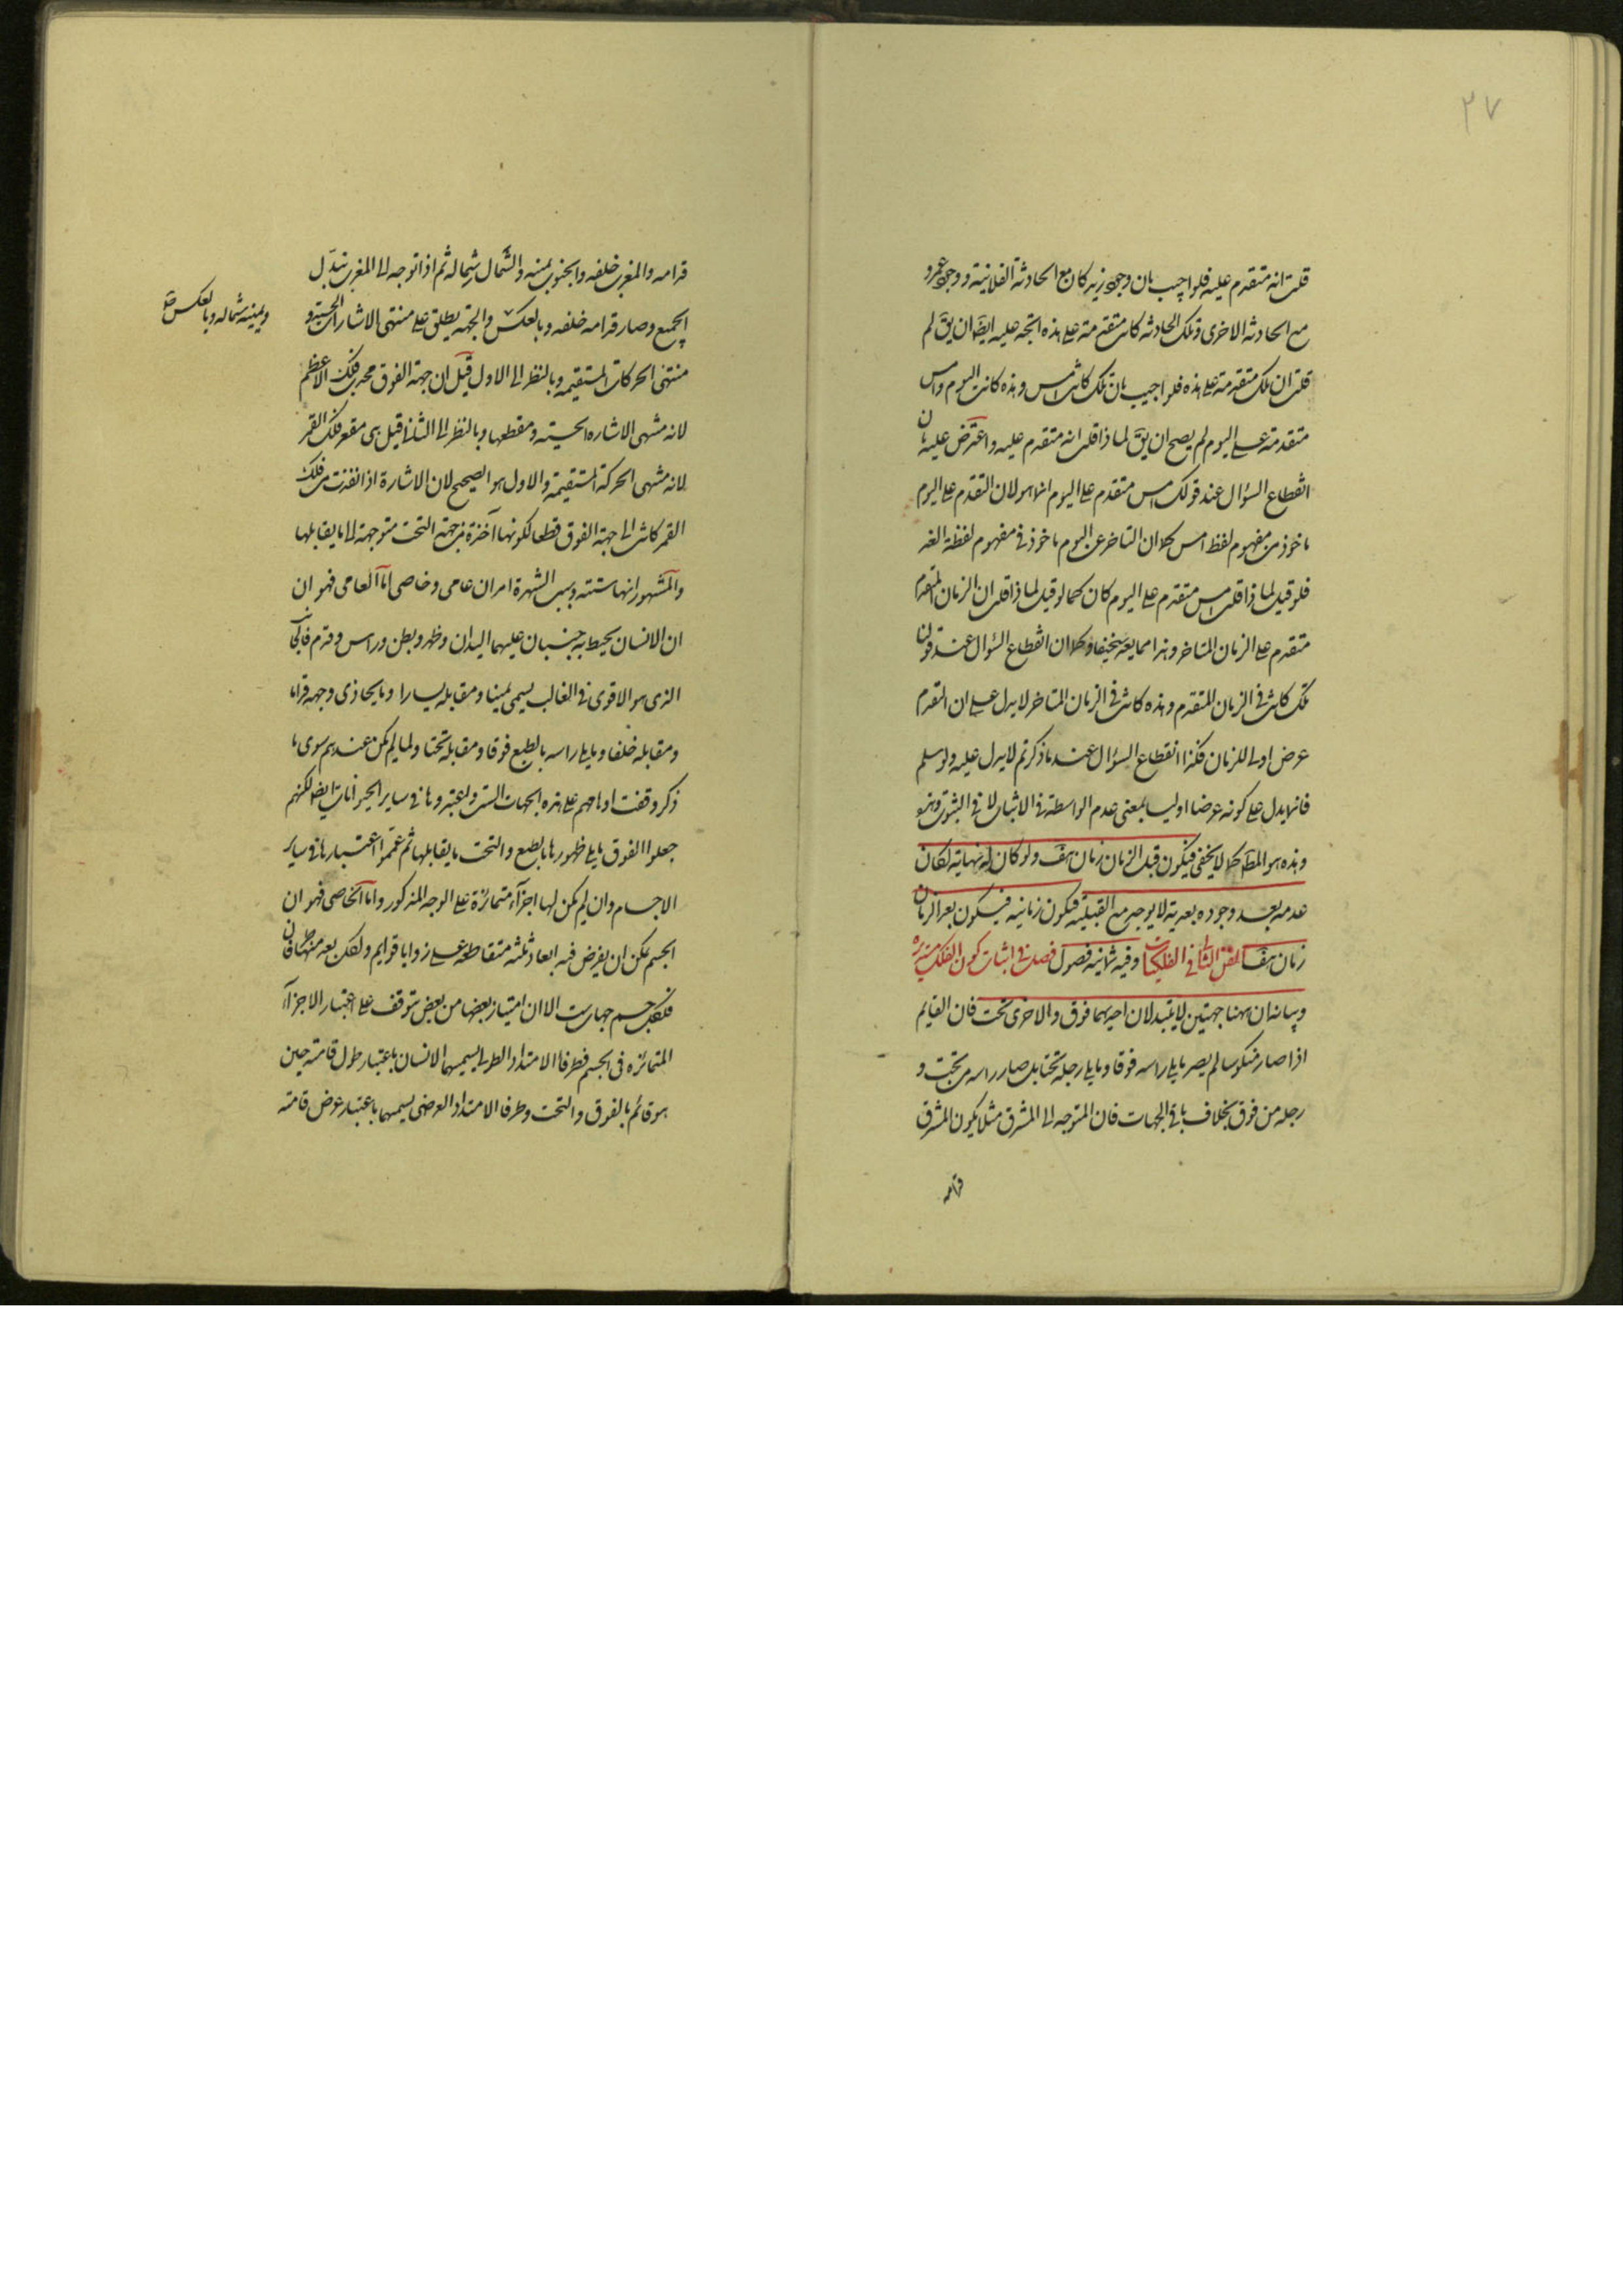 ٢٧
قلت انه متقدم عليه فلو اجيب بان وجود زيد كان مع الحادثة الفلانية ووجود عمرو
مع الحادثه الاخرى وتلك الحادثه كانت متقدمة على هذه اتجه عليه ايضا ان يق لم
قلت ان تلك متقدمة على هذه فلو اجيب بان تلك كانت امس وهذه كانت اليوم وامس
متقدمة على اليوم لم يصح ان يق لماذا قلت انه متقدم عليه واعترض عليه بان
انقطاع السؤال عند قولك امس متقدم على اليوم انما هو لان التقدم على اليوم
ماخوذ من مفهوم لفظ امس كما ان التاخر عن اليوم ماخوذ في مفهوم لفظة الغد
فلو قيل لماذا قلت امس متقدم على اليوم كان كما لو قيل لماذا قلت ان الزمان المتقدم
متقدم على الزمان المتاخر وهذا مما يعد سخيفا وكما ان انقطاع السؤال عند قولنا
تلك كانت في الزمان المتقدم وهذه كانت في الزمان المتاخر لا يدل على ان التقدم
عرض اولى للزمان فكذا انقطاع السؤال عند ما ذكرتم لا يدل عليه ولو سلم
فانما يدل على كونه عرضا اوليا بمعنى عدم الواسطة في الاثبات لا في الثبوت
وهذه هو المط كما لا يخفى فيكون قبل الزمان زمان هف ولو كان له نهاية لكان
عدمه بعد وجوده بعدية لا يوجد مع القبلية فيكون زمانية فيكون بعد الزمان
زمان هف الفن الثاني في الفلكيات وفيه ثمانية فصول فصل في اثبات كون الفلك مستديره
وبيانه ان ههنا جهتين لا يتبدلان احديهما فوق والاخرى تحت فان القايم
اذا صار منكوسا لم يصر ما يلى راسه فوقا وما يلى رجله تحتا بل صار راسه من تحت و
رجله من فوق بخلاف باقي الجهات فان المتوجه الى المشرق مثلا يكون المشرق
قدامه
قدامه والمغرب خلفه والجنوب يمينه والشمال شماله ثم اذا توجه الى المغرب تبدل
الجميع وصار قدامه خلفه وبالعكس والجهة يطلق على منتهى الاشارات الحسية و
ويمينه شماله وبالعكس
منتهى الحركات المستقيمة وبالنظر الى الاول قيل ان جهة الفوق محدب فلك الاعظم
لانه منتهى الاشاره الحسية ومقطعها وبالنظر الى الثاني قيل هي مقعر فلك القمر
لانه منتهى الحركة المستقيمة والاول هو الصحيح لان الاشارة اذا نفذت من فلك
القمر كانت الى جهة الفوق قطعا لكونها آخذة من جهة التحت متوجهة الى ما يقابلها
والمشهور انها ستة وسبب الشهرة امران عامى وخاصى اما العامى فهو ان
ان الانسان يحيط به جنبان عليهما اليدان وظهر وبطن وراس وقدم فالجانب
الذى هو الاقوى في الغالب يسمى يمينا ومقابله يسارا وما يحاذى وجهه قداما
ومقابله خلفا وما يلى راسه بالطبع فوقا ومقابله تحتا ولما لم يكن عندهم سوى ما
ذكر وقفت اوهامهم على هذه الجهات الست واعتبروها في ساير الحيوانات ايضا لكنهم
جعلوا الفوق ما يلى ظهورها بالطبع والتحت ما يقابلها ثم عمموا اعتبارها في ساير
الاجسام وان لم يكن لها اجزاء متمايزة على الوجه المذكور واما الخاصى فهو ان
الجسم يمكن ان يفرض فيه ابعاد ثلثه متقاطعة على زوايا قوايم ولكل بعد منها طرفان
فلكل جسم جهات ست الا ان امتياز بعضها من بعض يتوقف على اعتبار الاجزاء
المتمايزه في الجسم فطرفا الامتداد الطولى يسميهما الانسان باعتبار طول قامته حين
هو قائم بالفوق والتحت وطرفا الامتداد العرضى يسميهما باعتبار عرض قامته